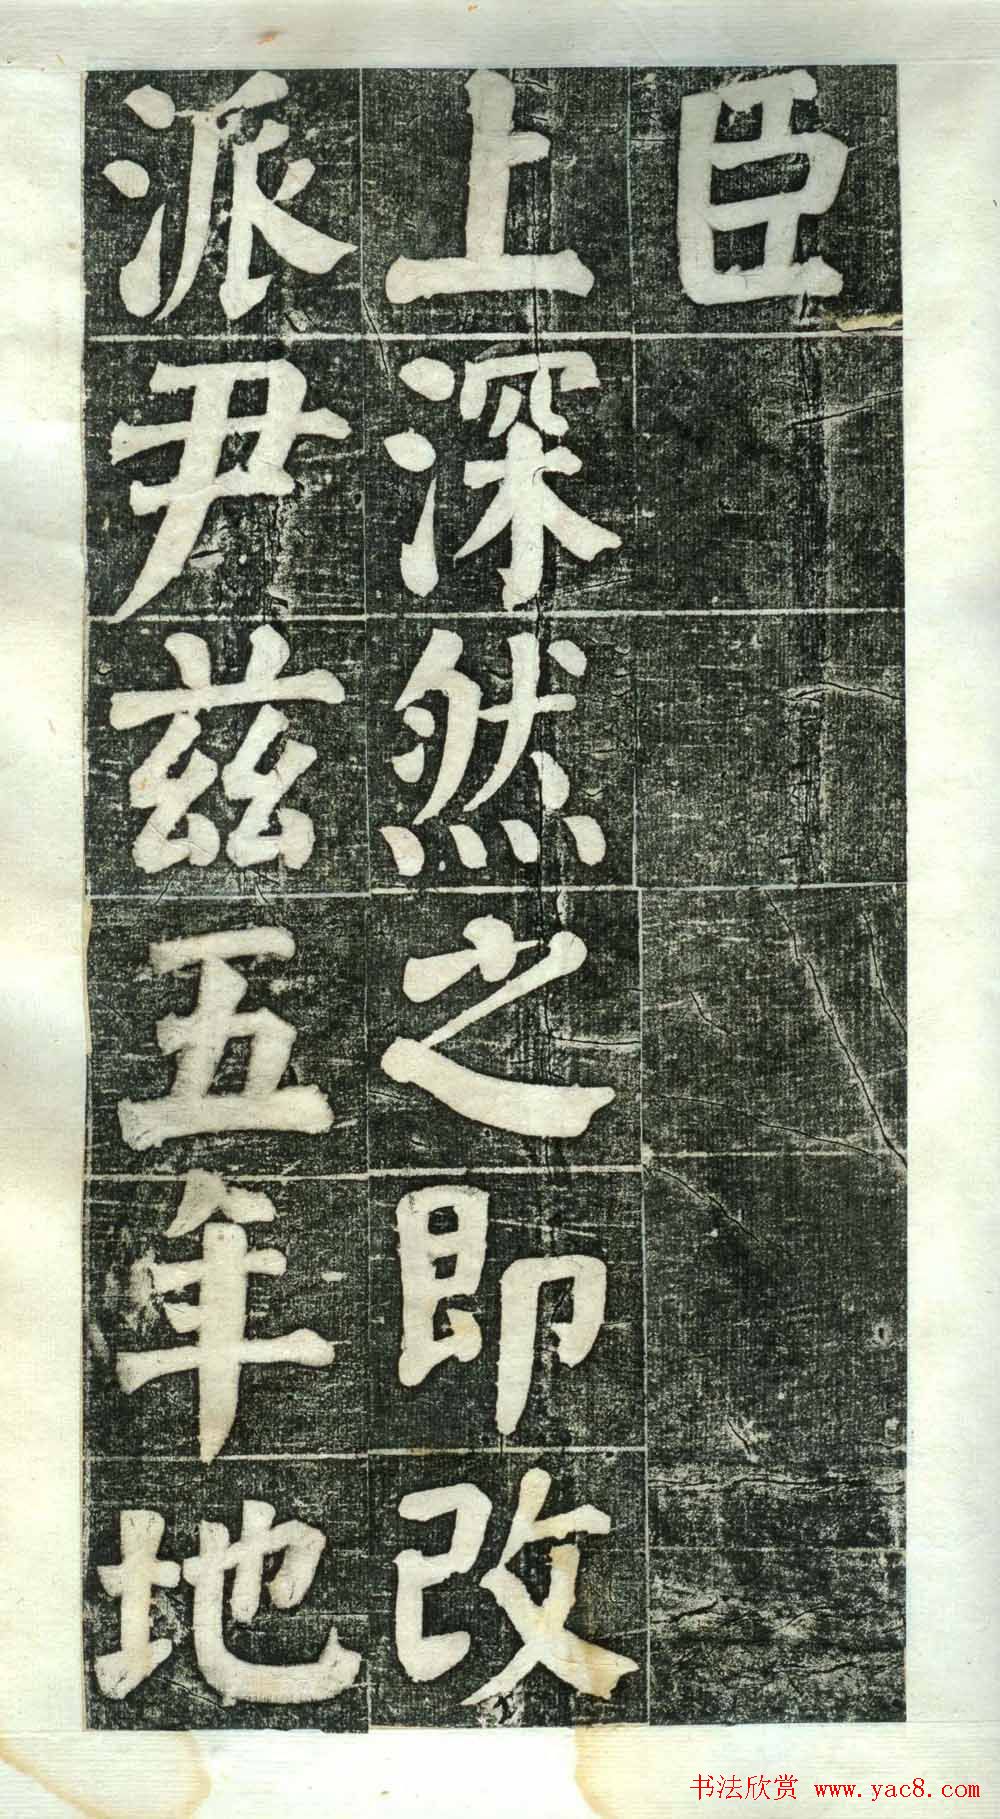 臣
上深然之即改
派尹兹五年地
书法欣赏 www.yac8.com